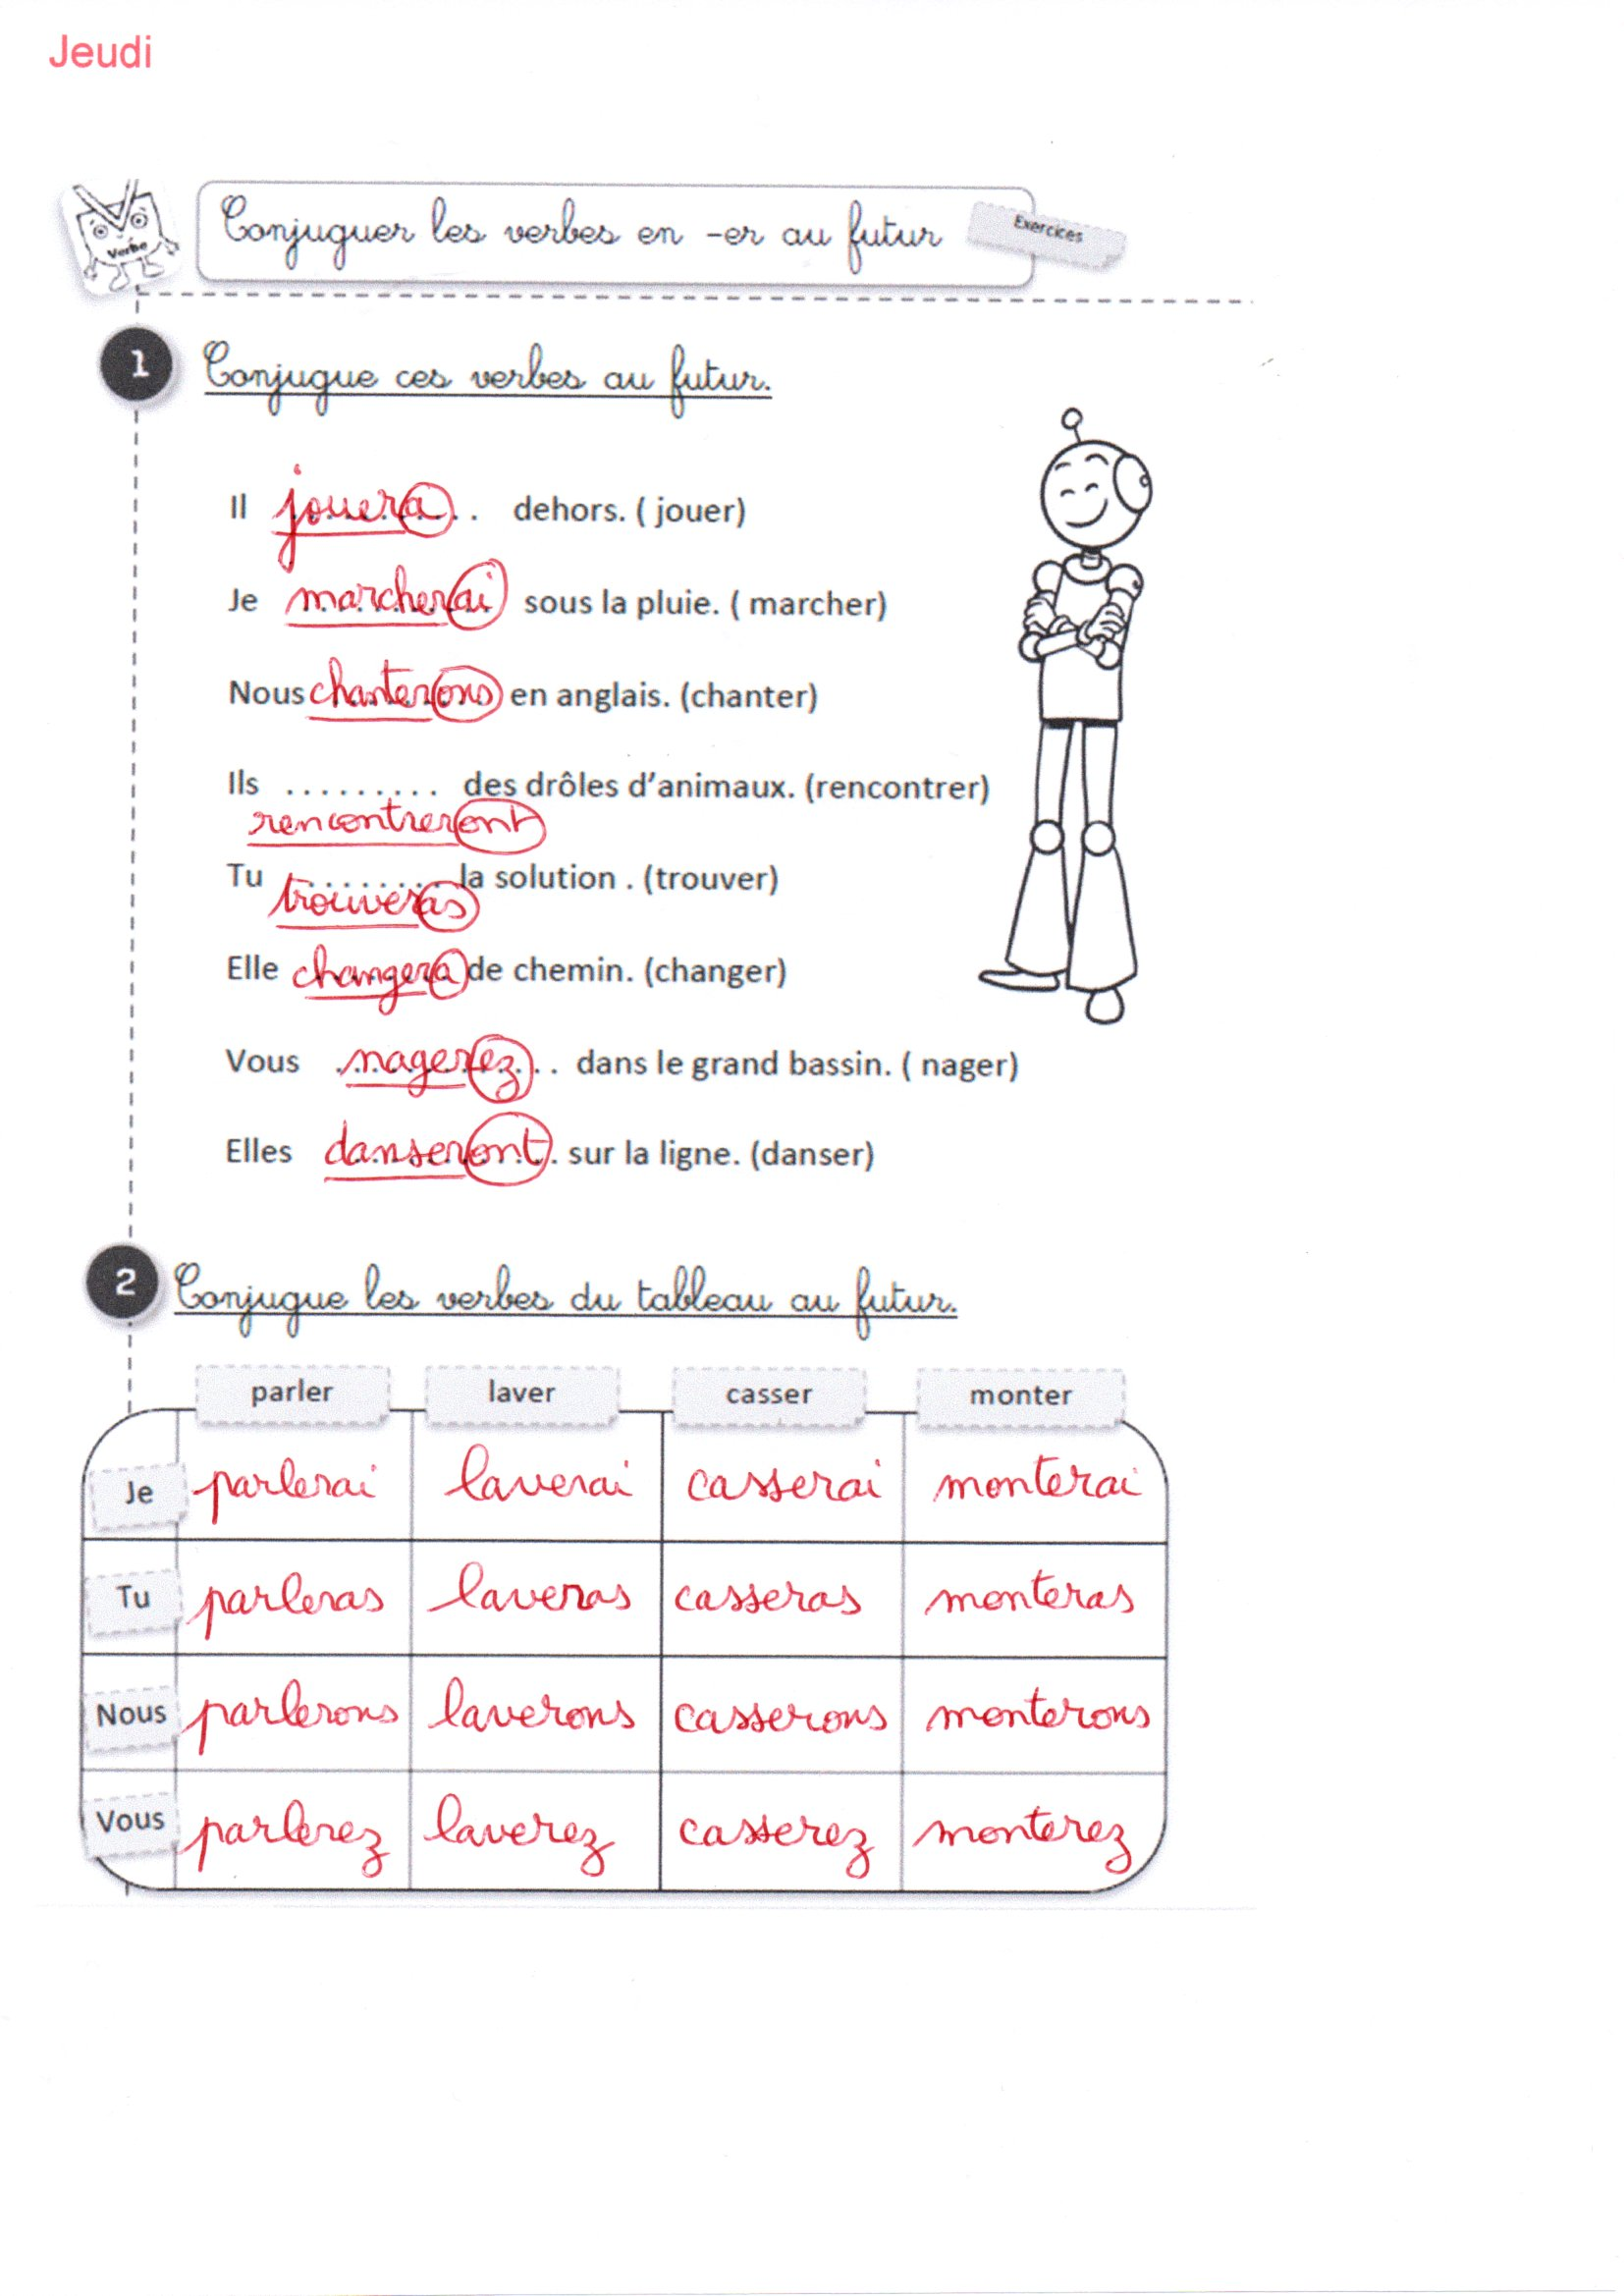 Jeudi
Verbe
Conjuguer les verbes en -er au futur
Exercices
1 Conjugue ces verbes au futur.
Il jouera dehors. ( jouer)
Je marcherai sous la pluie. ( marcher)
Nous chanterons en anglais. (chanter)
Ils ......... des drôles d'animaux. (rencontrer)
rencontreront
Tu ......... la solution . (trouver)
trouveras
Elle changera de chemin. (changer)
Vous nagerez dans le grand bassin. ( nager)
Elles danseront sur la ligne. (danser)
2 Conjugue les verbes du tableau au futur.
parler laver casser monter
Je parlerai laverai casserai monterai
Tu parleras laveras casseras monteras
Nous parlerons laverons casserons monterons
Vous parlerez laverez casserez monterez